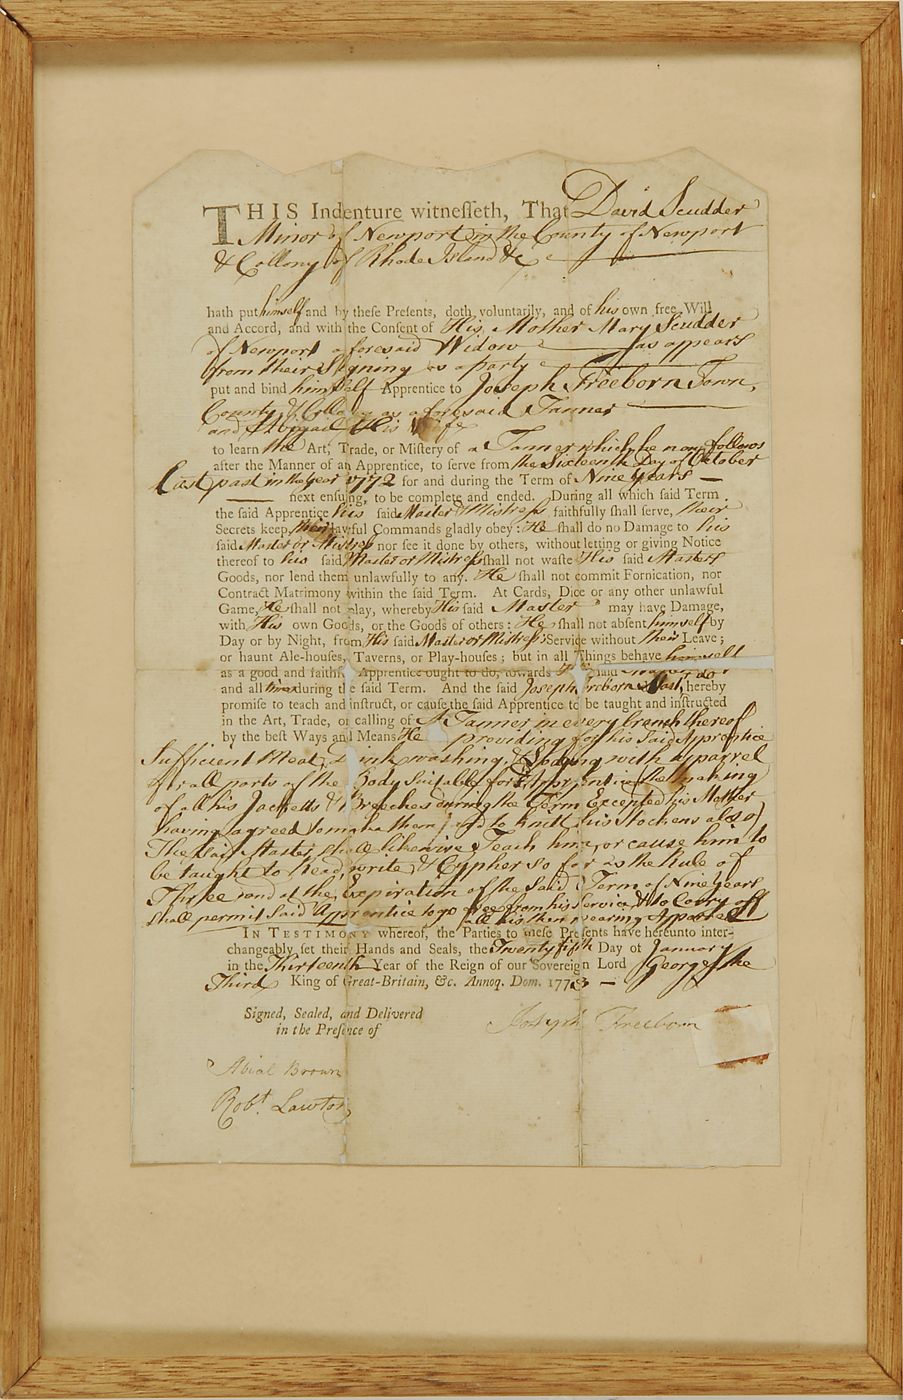 THIS Indenture witnesseth, That David Scudder
Minor of Newport in the County of Newport
& Collony of Rhode Island &c
hath put himself and by these Presents, doth voluntarily, and of his own free Will
and Accord, and with the Consent of His Mother Mary Scudder
of Newport aforesaid Widow as appears
from their Signing as a party
put and bind himself Apprentice to Joseph Freeborn Town,
County & Collony as aforesaid Tanner
and Abigail His Wife
to learn the Art, Trade, or Mistery of a Tanner which he now follows
after the Manner of an Apprentice, to serve from the Sixteenth Day of October
Last past in the Year 1772 for and during the Term of Nine Years
next ensuing, to be complete and ended. During all which said Term
the said Apprentice his said Master & Mistress faithfully shall serve, their
Secrets keep, their lawful Commands gladly obey: He shall do no Damage to his
said Master or Mistress nor see it done by others, without letting or giving Notice
thereof to his said Master or Mistress shall not waste His said Masters
Goods, nor lend them unlawfully to any. He shall not commit Fornication, nor
Contract Matrimony within the said Term. At Cards, Dice or any other unlawful
Game, He shall not play, whereby His said Master may have Damage,
with His own Goods, or the Goods of others: He shall not absent himself by
Day or by Night, from His said Master or Mistress Service without Their Leave;
or haunt Ale-houses, Taverns, or Play-houses; but in all Things behave himself
as a good and faithful Apprentice ought to do, towards said
and all during the said Term. And the said Joseph Freeborn hereby
promise to teach and instruct, or cause the said Apprentice to be taught and instructed
in the Art, Trade, or calling of A Tanner in every branch thereof
by the best Ways and Means He providing for his Said Apprentice
Sufficient Meat, Drink washing, & Lodging with Apparrel
of all parts of the Body Suitable for Apprentice (the making
of all his Jacketts & Breeches during the Term Excepted his Mother
having agreed to make them, and to knitt his Stockens also)
The said Master shall likewise Teach him, or cause him to
be taught to Read, write & Cypher so far as the Rule of
Three and at the Expiration of the Said Term of Nine Years
Shall permit Said Apprentice to go free from his Service & to Carry off
all his then wearing Apparel
IN TESTIMONY whereof, the Parties to these Presents have hereunto inter-
changeably set their Hands and Seals, the Twenty fifth Day of January
in the Thirteenth Year of the Reign of our Sovereign Lord George the
Third King of Great-Britain, &c. Annoq. Dom. 1773
Signed, Sealed, and Delivered
in the Presence of
Joseph Freeborn
Abial Brown
Robt. Lawton